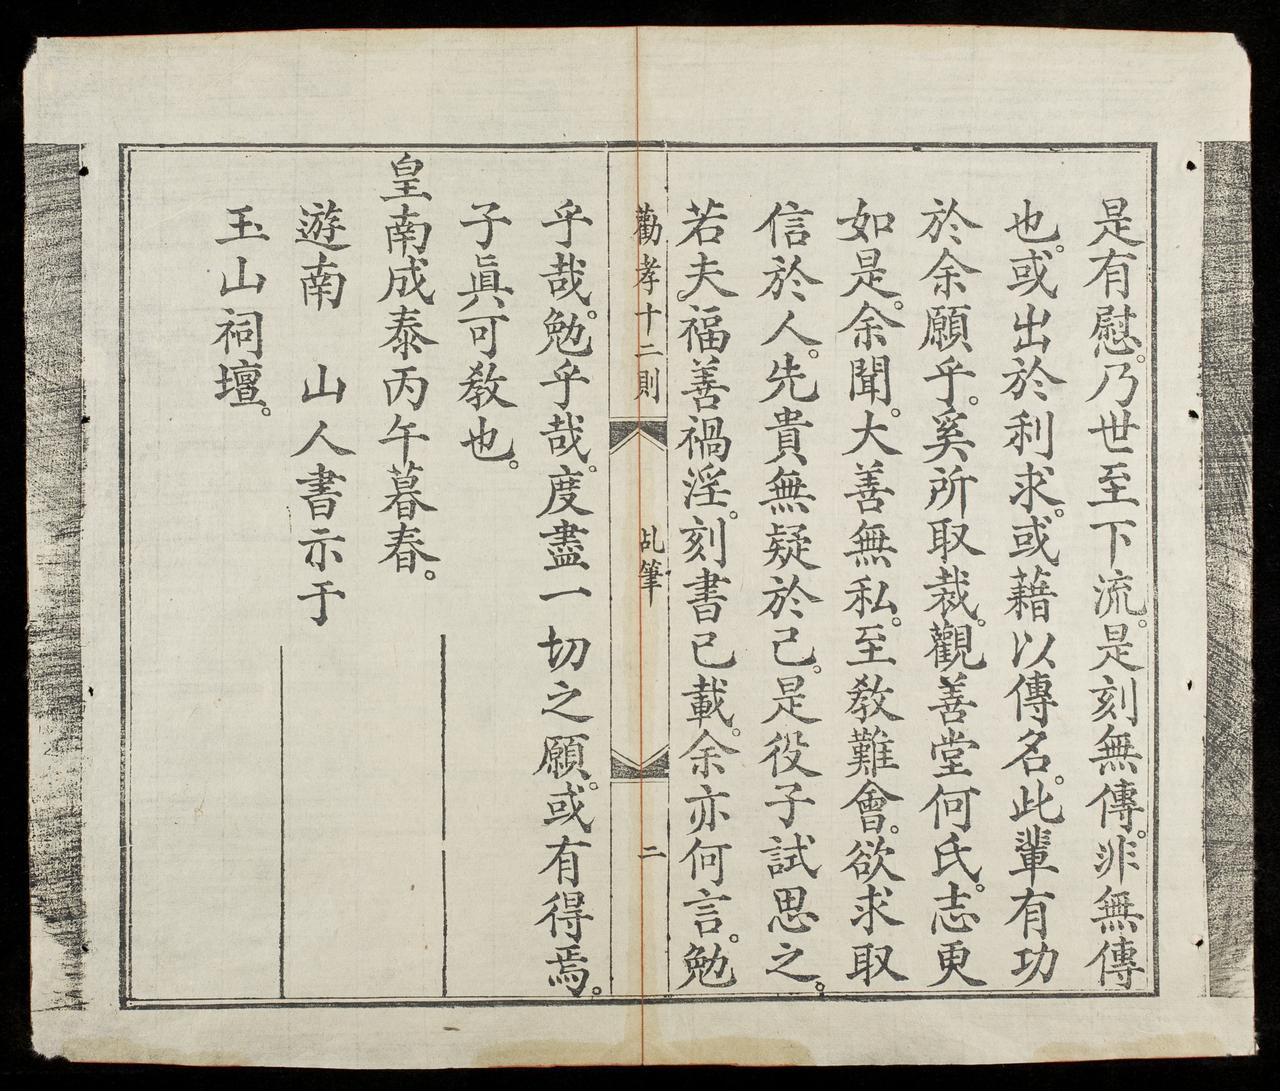 是有慰。乃世至下流。是刻無傳。非無傳
也。或出於利求。或藉以傳名。此輩有功
於余願乎。奚所取裁。觀善堂何氏。志更
如是。余聞。大善無私。至教難會。欲求取
信於人。先貴無疑於己。是役子試思之。
若夫。福善禍淫。刻書已載。余亦何言。勉
勸孝十二則
乩筆
二
乎哉。勉乎哉。度盡一切之願。或有得焉。
子眞可教也。
皇南成泰丙午暮春。
遊南 山人書示于
玉山祠壇。